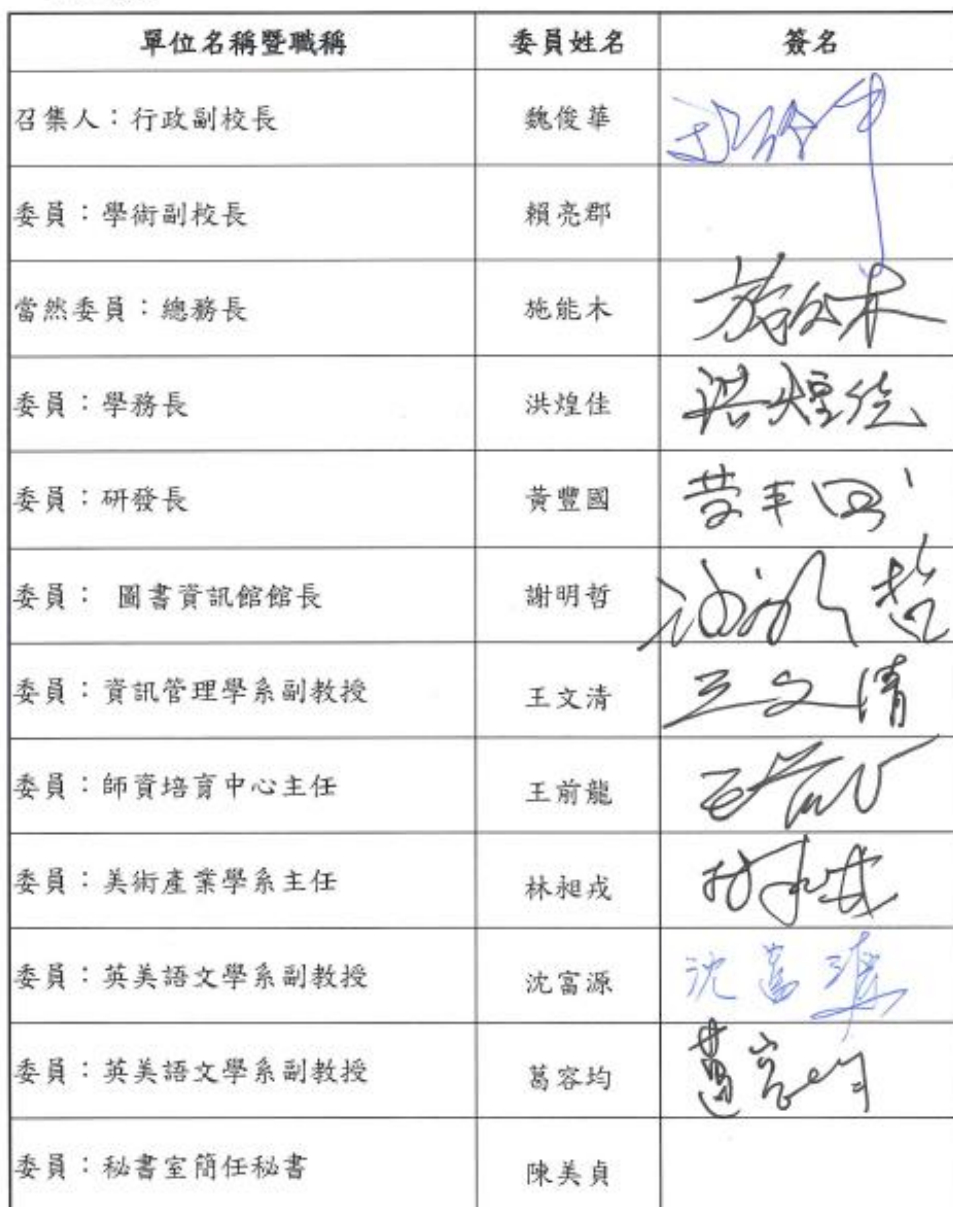 單位名稱暨職稱 委員姓名 簽名
召集人：行政副校長 魏俊華
委員：學術副校長 賴亮郡
當然委員：總務長 施能木 施能木
委員：學務長 洪煌佳 洪煌佳
委員：研發長 黃豐國
委員： 圖書資訊館館長 謝明哲
委員：資訊管理學系副教授 王文清 王文清
委員：師資培育中心主任 王前龍
委員：美術產業學系主任 林昶戎
委員：英美語文學系副教授 沈富源 沈富源
委員：英美語文學系副教授 葛容均 葛容均
委員：秘書室簡任秘書 陳美貞